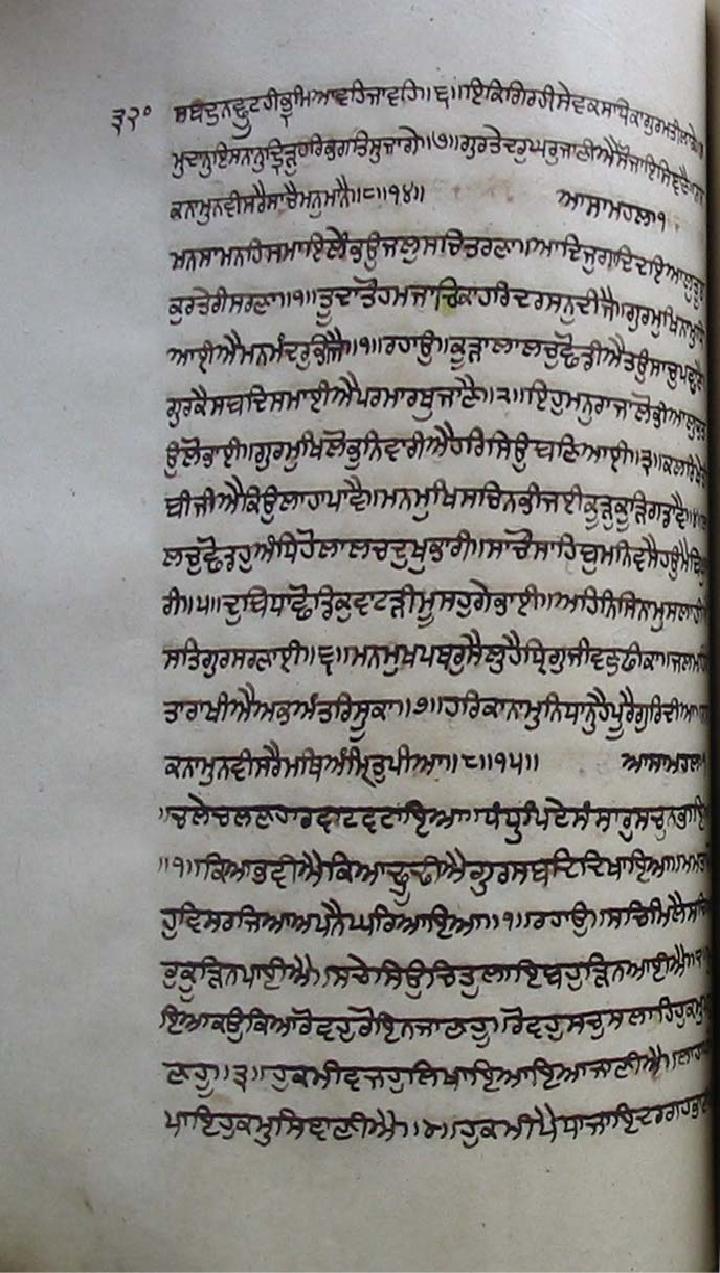 ੩੨੦ ਸਬਦੁ ਨ ਛੂਟਹੀ ਭ੍ਰਮਿ ਆਵਹਿ ਜਾਵਹਿ॥੬॥ਇਕਿ ਗਿਰਹੀ ਸੇਵਕ ਸਾਧਿਕਾ ਗੁਰਮਤੀ ਲਾਗੇ॥
ਮੁਦਾਨੁ ਇਸਨਾਨੁ ਦ੍ਰਿੜੁ ਹਰਿ ਭਗਤਿ ਸੁ ਜਾਗੇ॥੭॥ਗੁਰ ਤੇ ਦਰੁ ਘਰੁ ਜਾਣੀਐ ਸੋ ਜਾਇ ਸਿਞਾਣੈ
ਕ ਨਾਮੁ ਨ ਵੀਸਰੈ ਸਾਚੇ ਮਨੁ ਮਾਨੈ॥੮॥੧੪॥ ਆਸਾ ਮਹਲਾ ੧
ਮਨਸਾ ਮਨਹਿ ਸਮਾਇਲੇ ਭਉਜਲੁ ਸਚਿ ਤਰਣਾ॥ਆਦਿ ਜੁਗਾਦਿ ਦਇਆਲੁ ਤੂ
ਕੁਰ ਤੇਰੀ ਸਰਣਾ॥੧॥ਤੂ ਦਾਤੋ ਹਮ ਜਾਚਿਕਾ ਹਰਿ ਦਰਸਨੁ ਦੀਜੈ॥ਗੁਰਮੁਖਿ ਨਾਮੁ
ਆਈਐ ਮਨ ਮੰਦਰੁ ਭੀਜੈ॥੧॥ਰਹਾਉ॥ਕੂੜਾ ਲਾਲਚੁ ਛੋਡੀਐ ਤਉ ਸਾਚੁ ਪਛਾਣੈ
ਗੁਰ ਕੈ ਸਬਦਿ ਸਮਾਈਐ ਪਰਮਾਰਥੁ ਜਾਣੈ॥੨॥ਇਹੁ ਮਨੁ ਰਾਜਾ ਲੋਭੀਆ ਲੁਭਤ
ਉ ਲੋਭਾਈ॥ਗੁਰਮੁਖਿ ਲੋਭੁ ਨਿਵਾਰੀਐ ਹਰਿ ਸਿਉ ਬਣਿ ਆਈ॥੩॥ਕਲਰਿ ਖੇਤੀ
ਬੀਜੀਐ ਕਿਉ ਲਾਹਾ ਪਾਵੈ॥ਮਨਮੁਖਿ ਸਚਿ ਨ ਭੀਜਈ ਕੂੜੁ ਕੂੜਿ ਗਡਾਵੈ॥੪॥
ਲਚੁ ਛੋਡਹੁ ਅੰਧਿਹੋ ਲਾਲਚਿ ਦੁਖੁ ਭਾਰੀ॥ਸਾਚੌ ਸਾਹਿਬੁ ਮਨਿ ਵਸੈ ਹਉਮੈ ਬਿਖੁ
ਰੀ॥੫॥ਦੁਬਿਧਾ ਛੋਡਿ ਕੁਵਾਟੜੀ ਮੂਸਹੁਗੇ ਭਾਈ॥ਅਹਿਨਿਸਿ ਨਾਮੁ ਸਲਾਹੀਐ
ਸਤਿਗੁਰ ਸਰਣਾਈ॥੬॥ਮਨਮੁਖ ਪਥਰੁ ਸੈਲੁ ਹੈ ਧ੍ਰਿਗੁ ਜੀਵਣੁ ਫੀਕਾ॥ਜਲ ਮਹਿ
ਤਾ ਰਾਖੀਐ ਅਭ ਅੰਤਰਿ ਸੂਕਾ॥੭॥ਹਰਿ ਕਾ ਨਾਮੁ ਨਿਧਾਨੁ ਹੈ ਪੂਰੈ ਗੁਰਿ ਦੀਆ
ਕ ਨਾਮੁ ਨ ਵੀਸਰੈ ਮਥਿ ਅੰਮ੍ਰਿਤੁ ਪੀਆ॥੮॥੧੫॥ ਆਸਾ ਮਹਲਾ ੧
॥ਚਲੇ ਚਲਣਹਾਰ ਵਾਟ ਵਟਾਇਆ॥ਧੰਧੁ ਪਿਟੇ ਸੰਸਾਰੁ ਸਚੁ ਨ ਭਾਇ
॥੧॥ਕਿਆ ਭਵੀਐ ਕਿਆ ਢੂਢੀਐ ਗੁਰ ਸਬਦਿ ਦਿਖਾਇਆ॥ਮਮਤਾ
ਹੁ ਵਿਸਰਜਿਆ ਅਪਨੈ ਘਰਿ ਆਇਆ॥੧॥ਰਹਾਉ॥ਸਚਿ ਮਿਲੈ ਸਚਿ
ਰੁ ਕੂੜਿ ਨ ਪਾਈਐ॥ਸਚੇ ਸਿਉ ਚਿਤੁ ਲਾਇ ਬਹੁੜਿ ਨ ਆਈਐ॥੨॥
ਇਆ ਕਉ ਕਿਆ ਰੋਵਹੁ ਰੋਇ ਨ ਜਾਣਹੁ॥ਰੋਵਹੁ ਸਚੁ ਸਲਾਹਿ ਹੁਕਮੁ
ਣਹੁ॥੩॥ਹੁਕਮੀ ਵਜਹੁ ਲਿਖਾਇ ਆਇਆ ਜਾਣੀਐ॥ਲਾਹਾ
ਪਾਇ ਹੁਕਮੁ ਸਿਞਾਣੀਐ॥੪॥ਹੁਕਮੀ ਪੈਧਾ ਜਾਇ ਦਰਗਹ ਭਾਣੀ